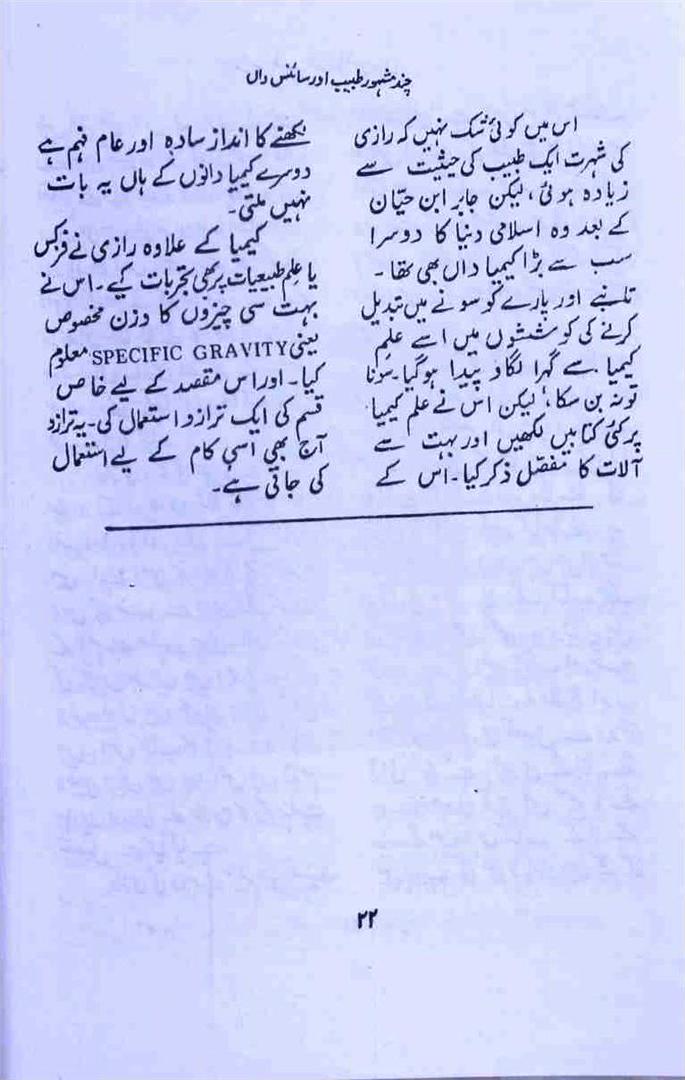 چند مشہور طبیب اور سائنس داں
اس میں کوئی شک نہیں کہ رازی
کی شہرت ایک طبیب کی حیثیت سے
زیادہ ہوئی، لیکن جابر ابن حیّان
کے بعد وہ اسلامی دنیا کا دوسرا
سب سے بڑا کیمیا داں بھی تھا۔
تانبے اور پارے کو سونے میں تبدیل
کرنے کی کوششوں میں اسے علمِ
کیمیا سے گہرا لگاؤ پیدا ہوگیا۔ سونا
تو نہ بن سکا، لیکن اس نے علم کیمیا
پر کئی کتابیں لکھیں اور بہت سے
آلات کا مفصّل ذکر کیا۔ اس کے
لکھنے کا انداز سادہ اور عام فہم ہے
دوسرے کیمیا دانوں کے ہاں یہ بات
نہیں ملتی۔
کیمیا کے علاوہ رازی نے فزکس
یا علمِ طبیعیات پر بھی تجربات کیے۔ اس نے
بہت سی چیزوں کا وزن مخصوص
یعنی SPECIFIC GRAVITY معلوم
کیا۔ اور اس مقصد کے لیے خاص
قسم کی ایک ترازو استعمال کی۔ یہ ترازو
آج بھی اسی کام کے لیے استعمال
کی جاتی ہے۔
۲۲